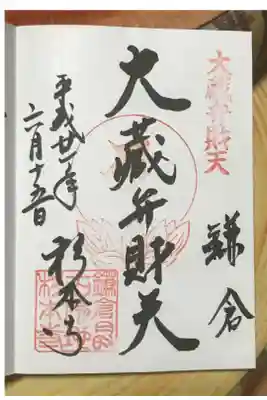 大蔵弁財天
鎌倉
大蔵弁財天
平成廿一年
六月十五日
杉本寺